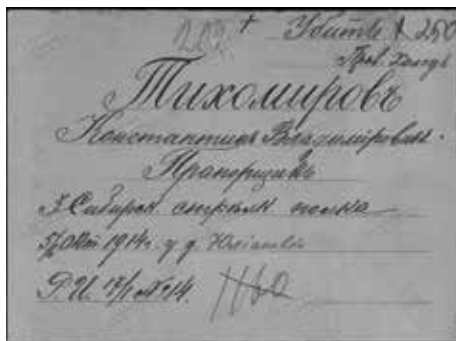 202 + Убитые № 250
Тихомировъ
Константинъ Владиміровичъ.
Прапорщикъ
3 Сибирск. стрѣлк. полка
5/Окт 1914г. у д.
Р.И. 17/I №14. 1160